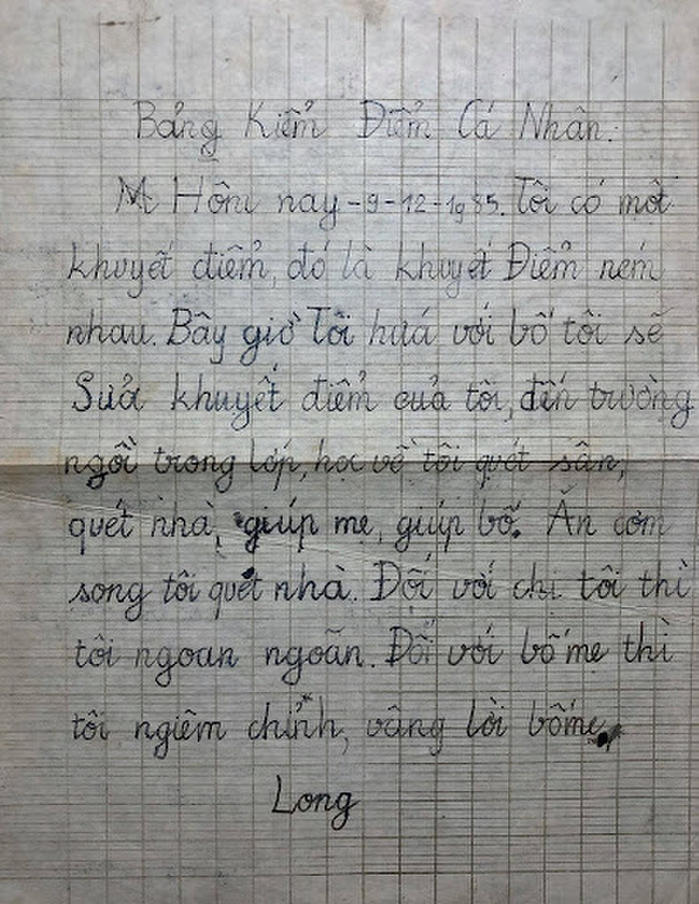 Bảng Kiểm Điểm Cá Nhân.
Hôm nay-9-12-1985. Tôi có một
khuyết điểm, đó là khuyết Điểm ném
nhau. Bây giờ Tôi hứa với bố tôi sẽ
Sửa khuyết điểm của tôi, đến trường
ngồi trong lớp, học về tôi quét sân,
quét nhà, giúp mẹ, giúp bố. Ăn cơm
song tôi quét nhà. Đối với chị tôi thì
tôi ngoan ngoãn. Đối với bố mẹ thì
tôi ngiêm chỉnh, vâng lời bố mẹ,
Long